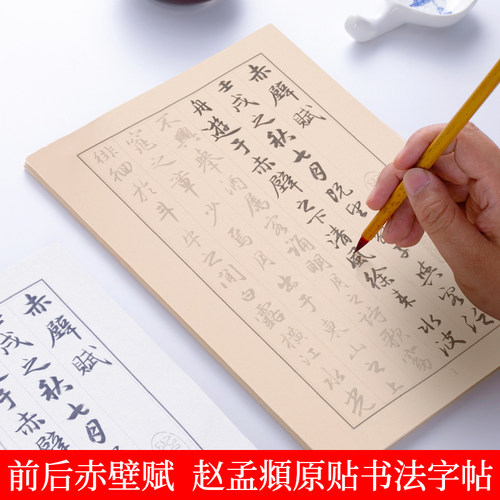 赤壁賦
壬戌之秋七月既望子與客泛
舟遊于赤壁之下清風徐来水波
不興舉酒属客誦明月之詩歌窈
窕之章少焉月出于東山之上
徘徊於斗牛之间白露横江水光
赤壁賦
戌之秋七月
于赤壁
前后赤壁赋 赵孟頫原贴书法字帖